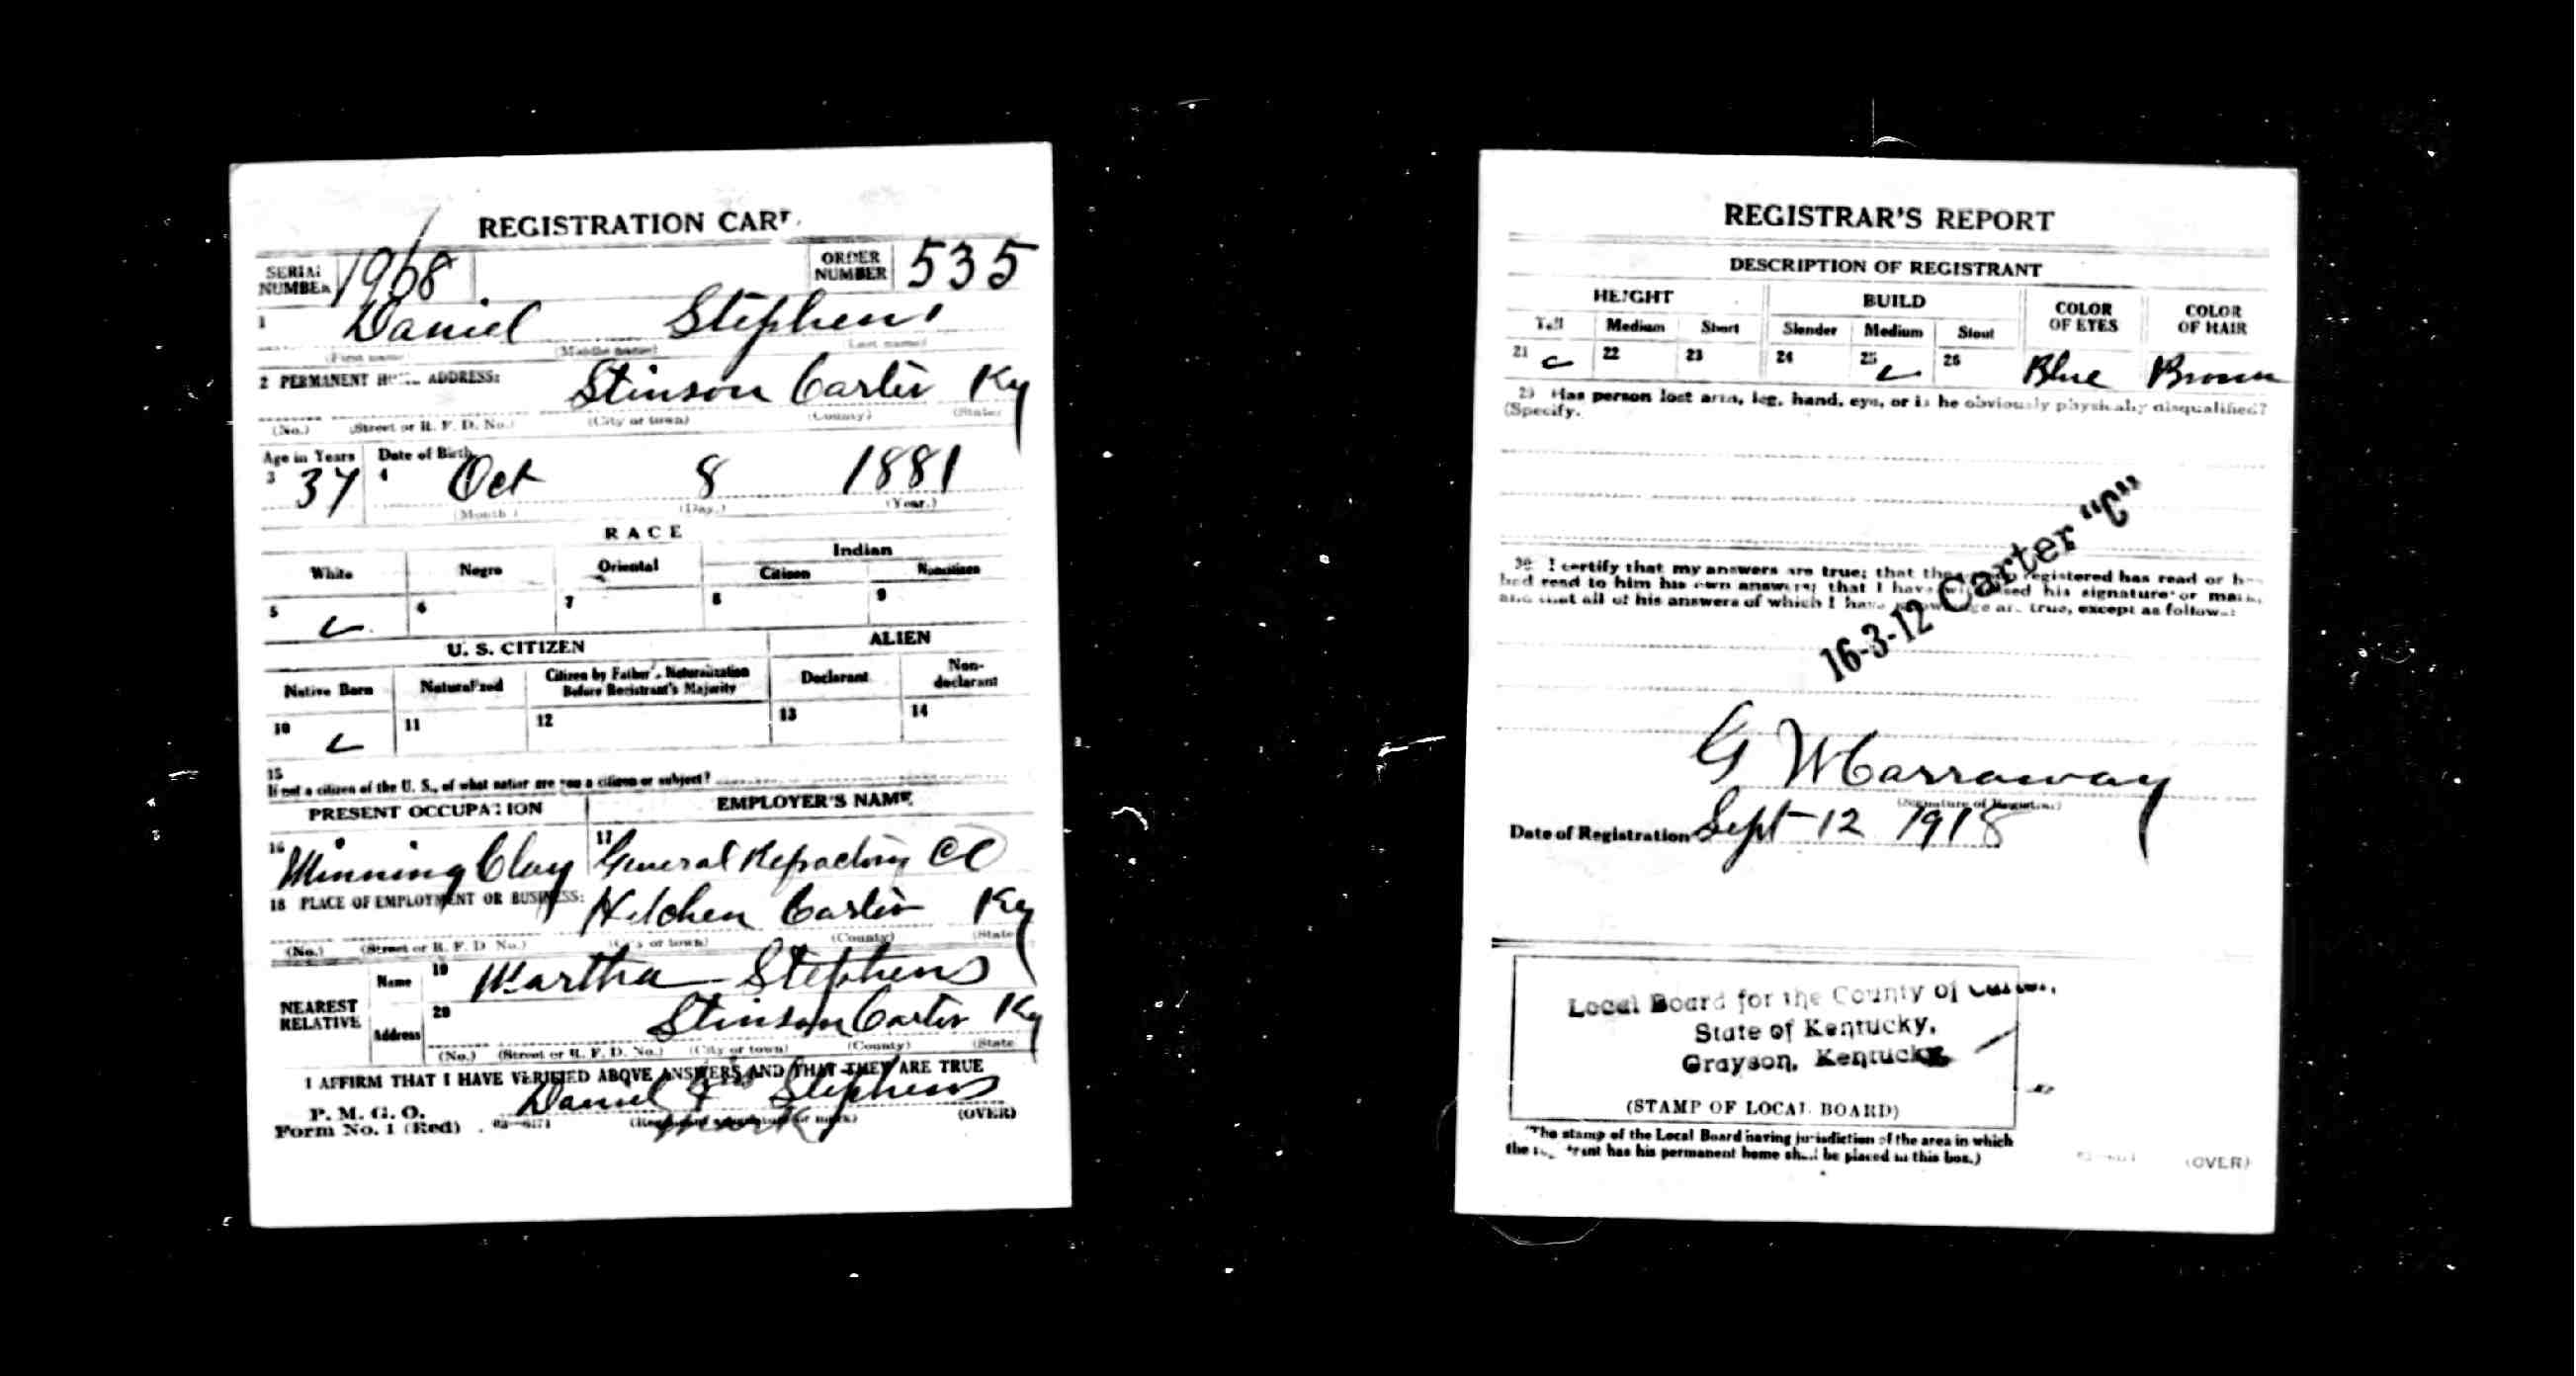 REGISTRATION CARD
SERIAL NUMBER 1968
ORDER NUMBER 535
1 Daniel Stephens
(First name) (Middle name) (Last name)
2 PERMANENT HOME ADDRESS: Stinson Carter Ky
(No.) (Street or R. F. D. No.) (City or town) (County) (State)
Age in Years Date of Birth
3 37 4 Oct 8 1881
(Month.) (Day.) (Year.)
RACE
White Negro Oriental Indian
Citizen Noncitizen
5 6 7 8 9
U. S. CITIZEN ALIEN
Native Born Naturalized Citizen by Father's Naturalization Before Registrant's Majority Declarant Non-declarant
10 11 12 13 14
15
If not a citizen of the U. S., of what nation are you a citizen or subject?
PRESENT OCCUPATION EMPLOYER'S NAME
16 Minning Clay 17 General Refractory Co
18 PLACE OF EMPLOYMENT OR BUSINESS: Hitchen Carter Ky
(No.) (Street or R. F. D. No.) (City or town) (County) (State)
NEAREST RELATIVE Name 19 Martha Stephens
Address 20 Stinson Carter Ky
(No.) (Street or R. F. D. No.) (City or town) (County) (State)
I AFFIRM THAT I HAVE VERIFIED ABOVE ANSWERS AND THAT THEY ARE TRUE
his
Daniel X Stephens
mark
P. M. G. O.
Form No. 1 (Red) (Registrant's signature or mark) (OVER)
REGISTRAR'S REPORT
DESCRIPTION OF REGISTRANT
HEIGHT BUILD COLOR OF EYES COLOR OF HAIR
Tall Medium Short Slender Medium Stout
21 22 23 24 25 26 Blue Brown
29 Has person lost arm, leg, hand, eye, or is he obviously physically disqualified?
(Specify.
30 I certify that my answers are true; that the person registered has read or has
had read to him his own answers; that I have witnessed his signature or mark,
and that all of his answers of which I have knowledge are true, except as follows:
16-3-12 Carter "C"
G W Carraway
(Signature of Registrar)
Date of Registration Sept 12 1918
Local Board for the County of Carter,
State of Kentucky,
Grayson, Kentucky
(STAMP OF LOCAL BOARD)
(The stamp of the Local Board having jurisdiction of the area in which
the registrant has his permanent home shall be placed in this box.)
(OVER)